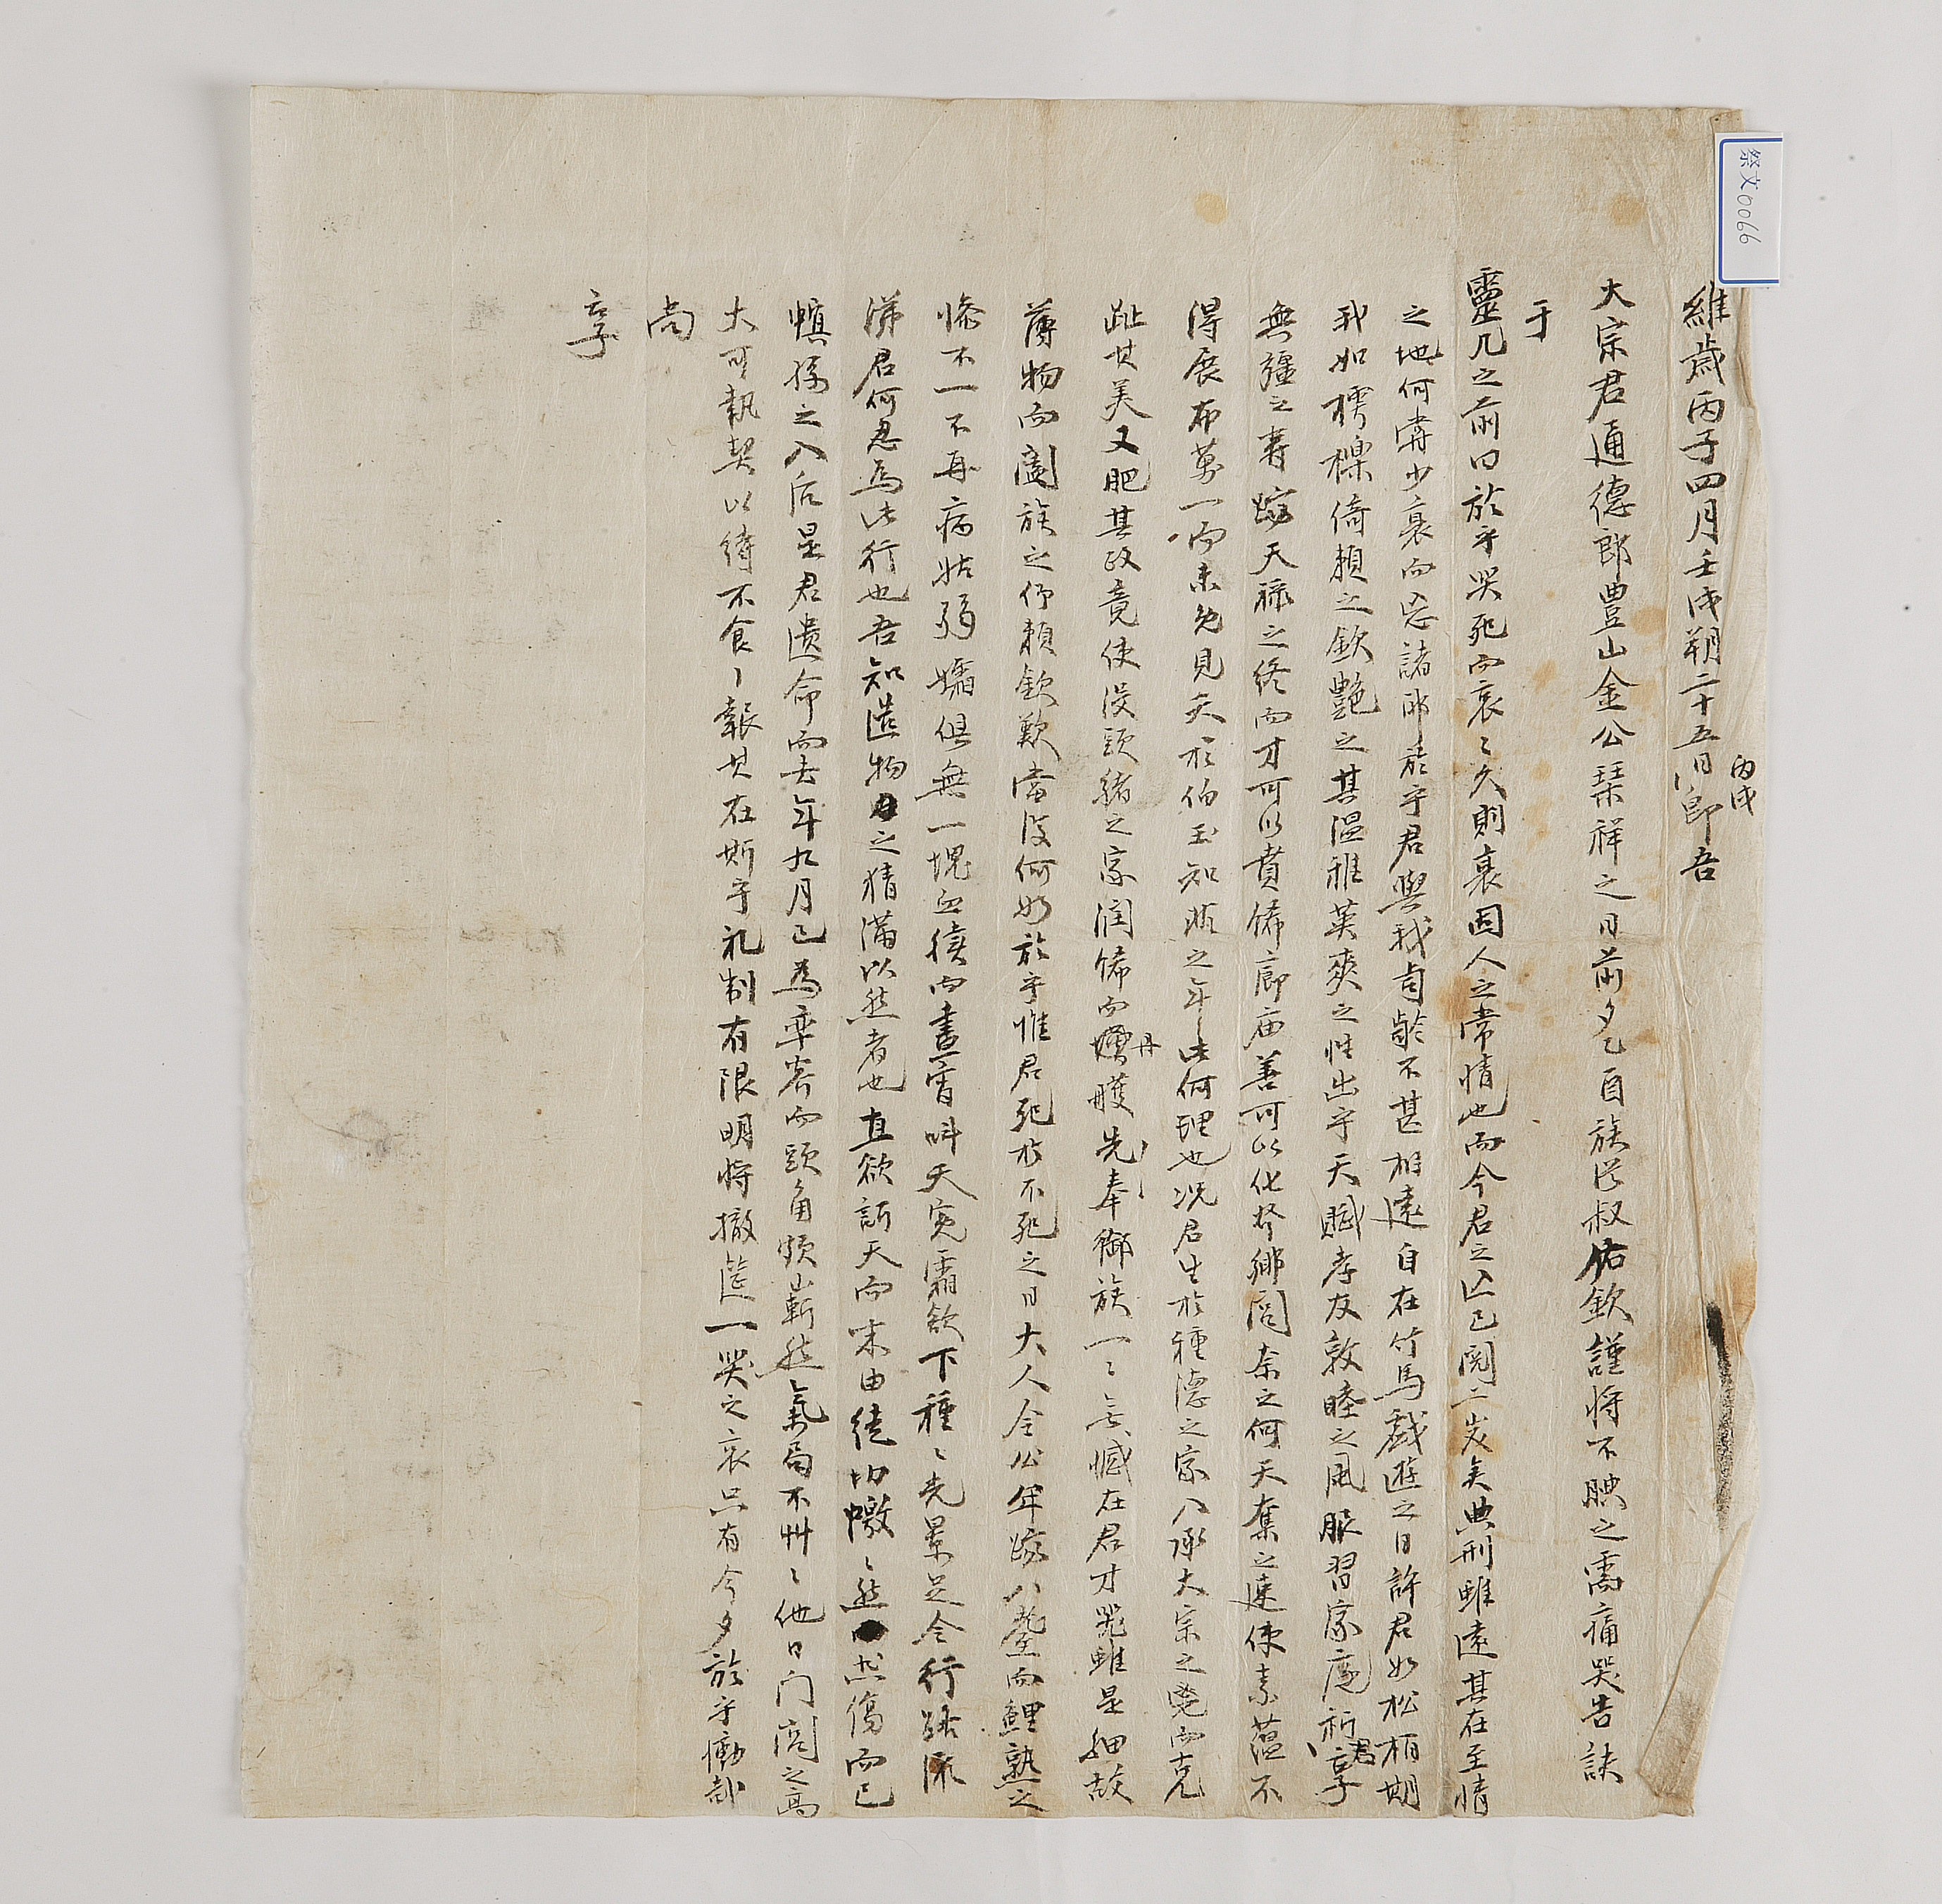 祭文0066
維歲丙子四月壬戌朔二十五日丙戌卽吾
大宗君通德郞豊山金公琹祥之日前夕乙酉族從叔佑欽謹將不腆之需痛哭告訣
于
靈几之前曰於乎哭死而哀哀久則衰固人之常情也而今君之亡已閱二炭矣典刑雖遠其在至情
之地何嘗少衰而忘諸耶於乎君與我齒齡不甚相遠自在竹馬戱遊之日許君如松栢期
我如樗櫟倚賴之欽艶之其溫雅英爽之性出乎天賦孝友敦睦之風服習家庭祈君享
無疆之壽 天祿之終而才可以賁飾廊庙善可以化 鄕閭奈之何天奪之速使素蘊不
得展布萬一而未免見夭於伯玉知非之年此何理也况君生於種德之家入承大宗之 而克
趾其美又肥其 竟使沒頭緖之家潤飾而 丹雘先奉御族一一無憾在君才器雖是細故
薄物而闔族之仰賴欽歎當復何如於乎惟君死於不死之日大人令公年 八耋而鯉熟之
慘不一不再病姑弱孀俱無一塊血續而晝宵呌天寃霜欲下種種光景足令行路 
涕君何忍爲此行也吾知造物 之猜滿以然者也直欲訴天而末由徒切 然 傷而已
 孫之入后是君遺命而去年九月已爲 而頭角頗嶄然氣局不草草他日门閭之高
大可執契以待不食之報其在斯乎礼制有限明將撤筵一哭之哀只有今夕於乎慟哉
尙
享